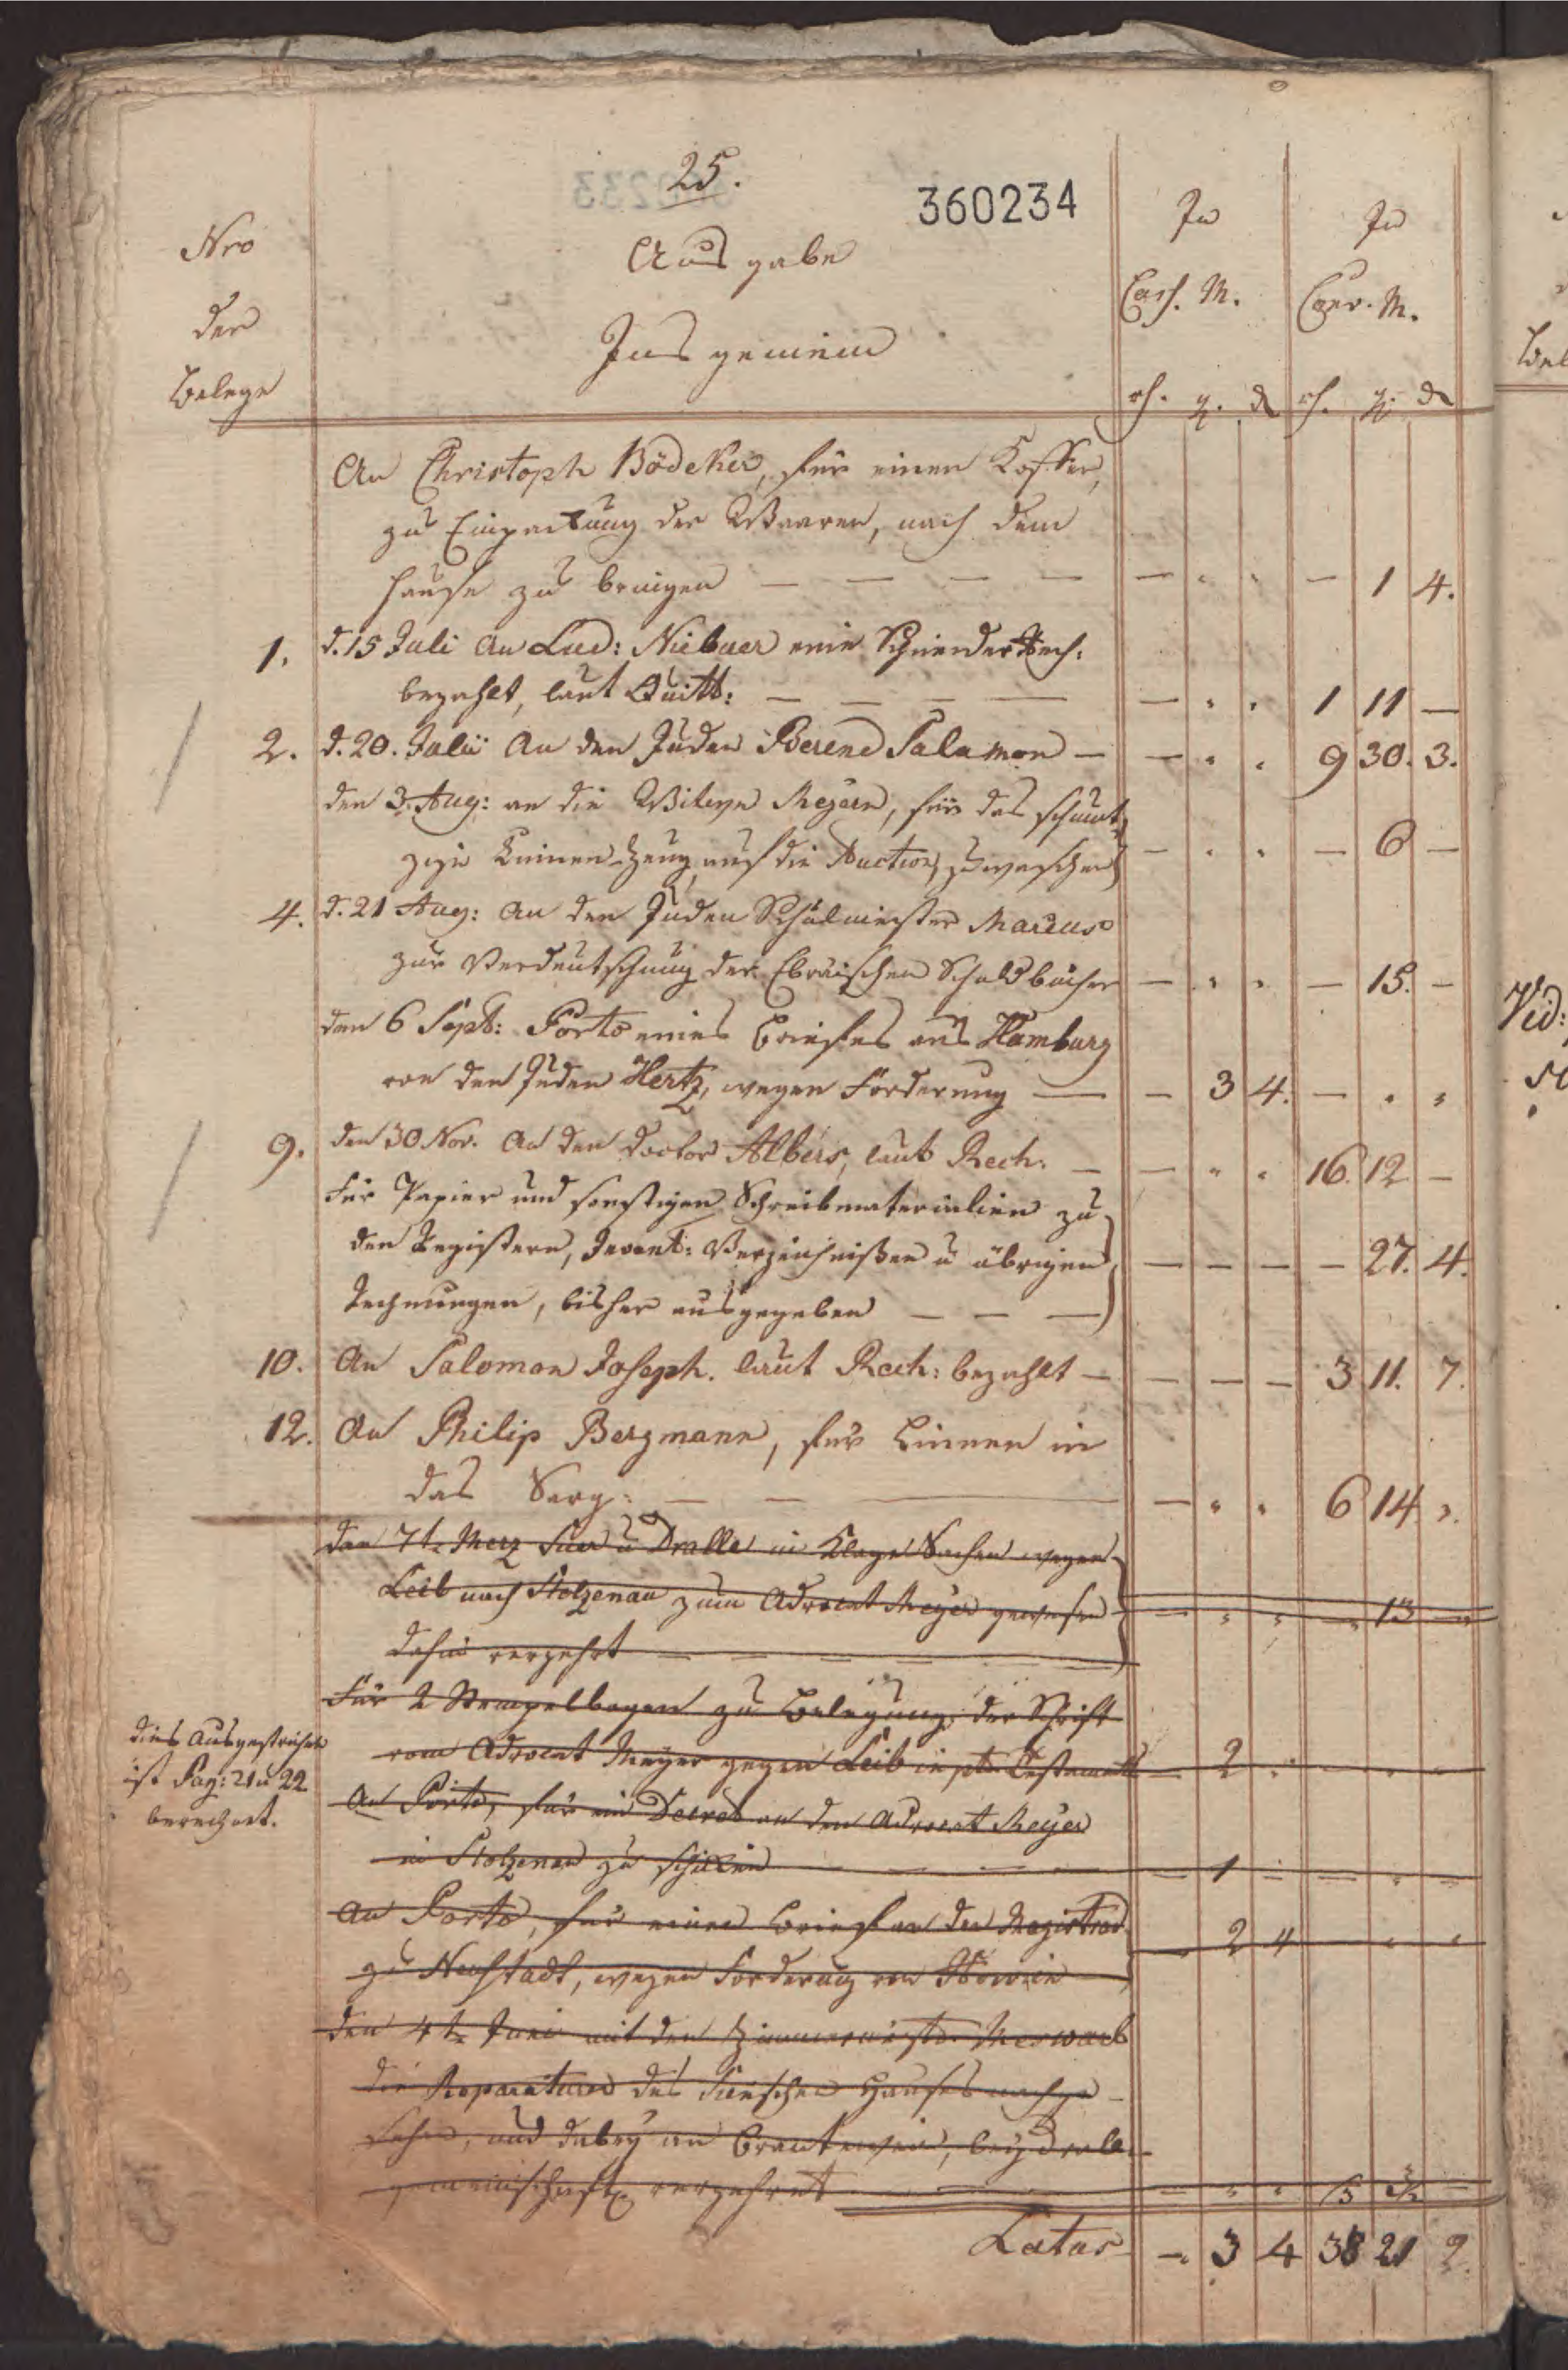 25.
360234
Nro
der
Belege
Ausgabe
Ins gemein
In
Cass. M.
In
Conv. M.
rh. g. d rh. g. d
An Christoph Bödeker, für einen Koffer,
zu Einpackung der Waaren, nach dem
Hause zu bringen — — — — — — 1 4.
1. d. 15 Juli An Lud: Niebuer eine Schneider Rech:
bezahlt, laut Quitt: — — — — — 1 11 —
2. d. 20. Julii An den Juden Berend Salamon — — 9 30. 3.
den 3. Aug: an die Witwe Meyern, für das schmut-
zige Linnen-Zeug auf die Auction zu waschen — — 6 —
4. d. 21 Aug: An den Juden Schulmeister Marcus
zur Verdeutschung der Ebräischen Schuldbücher — — 15. -
den 6 Sept: Porto eines Briefes aus Hamburg
von den Juden Hertz, wegen Forderung — - 3 4. —
9. den 30 Nov. An den Doctor Albers, laut Rech. — — 16. 12 —
Für Papier und sonstigen Schreibmaterialien zu
den Registern, Invent: Verzeichnißen u übrigen — — — — 27. 4.
Rechnungen, bisher ausgegeben — — —
10. An Salomon Joseph. laut Rech: bezahlt — — — — 3 11. 7.
12. An Philip Bergmann, für Linnen in
das Sarg: — — — — 6 14
den 7t. Merz u Dralle in Klage Sachen wegen
Leib nach Stolzenau zum Advocat Meyer gewesen — — 13 —
dahin verzehrt — — — —
Für 2 Stempelbogen zu Belegung der Schrift
vom Advocat Meyer gegen Leib in — 2
dies Ausgestrichen
ist Pag: 21 u 22
berechnet.
An Porto, für ein Decret an den Advocat Meyer
in Stolzenau zu schicken — — — — 1 —
An Porto, für einen Brief an den Magistrat
zu Neustadt, wegen Forderung von — 2 4
den 4t. Juni mit den Zimmermeister Meswarb
die Reparaturen des Hauses nachge-
sehen, und dabey an Brantewein,
gemeinschaftl. verzehret —
Latus — 3 4 38 21 2.
Vid: